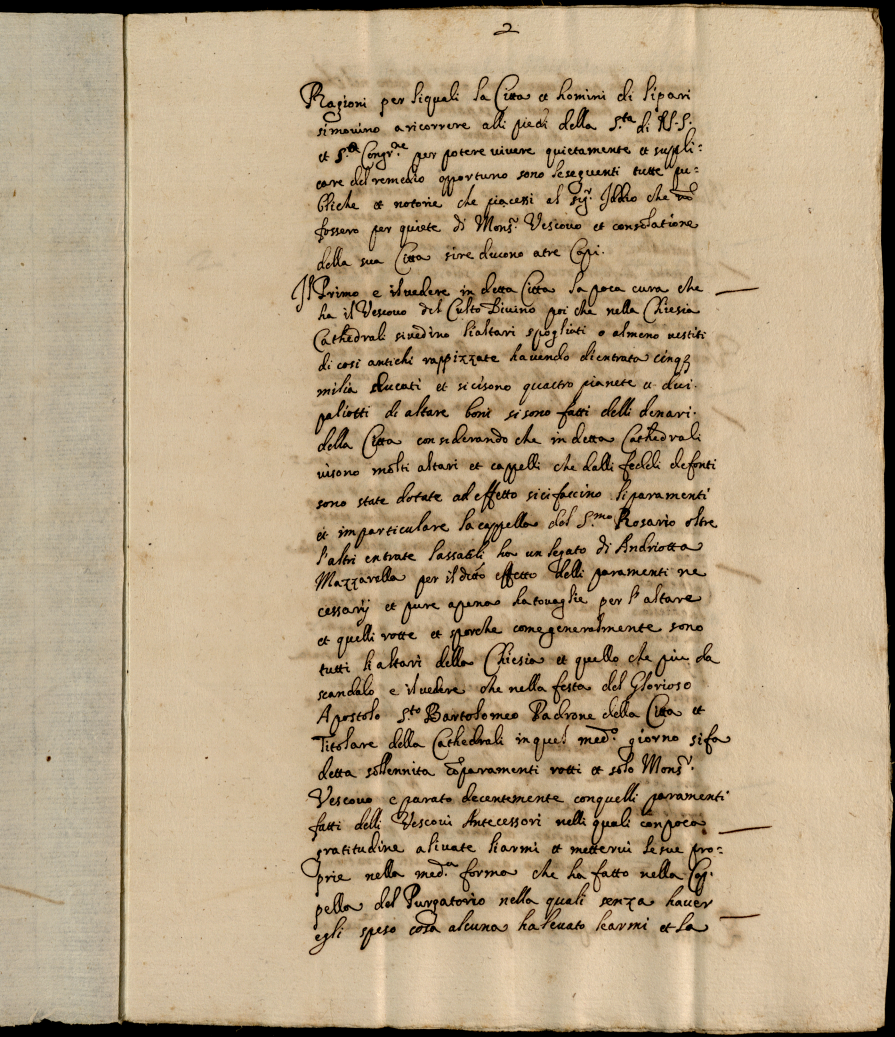 2
Ragioni per liquali la Citta et homini di Lipari
simovino aricorrere alli piedi della S.ta di N.S.
et S.a Congr.ne per potere vivere quietamente et suppli:
care del remedio opportuno sono leseguenti tutte pu:
bliche et notorie che piacessi al Sig.r Iddio che nõ
fossero per quiete di Mons.r Vescovo et consolatione
della sua Citta sireducono atre Capi.
Il Primo e ilvedere in detta Citta la poca cura che
ha il Vescovo del Culto Divino poi che nella Chiesia
Cathedrali sivedino lialtari spogliati o almeno vestiti
di cosi antichi rappizzate havendo dientrata cinq3
milia ducati et sicisono quattro pianete et dui
paliotti di altare boni sisono fatti delli denari
della Citta considerando che in detta Cathedrali
visono molti altari et cappelli che dalli fedeli defonti
sono state dotate ad effetto sicifaccino liparamenti
et imparticulare la cappella del S.mo Rosario oltre
l'altri entrate lassatili ha un legato di Andriotta
Mazzarella per il ditto effetto delli paramenti ne
cessarij et pure apena hatovaglie per l'altare
et quelli rotte et sporche comegeneralmente sono
tutti li altari della Chiesia et quello che più da
scandalo e ilvedere che nella festa del Glorioso
Apostolo S.to Bartolomeo Padrone della Citta et
Titolare della Cathedrali inquel med.o giorno sifa
detta sollennita cõparamenti rotti et solo Mons.r
Vescovo e parato decentemente conquelli paramenti
fatti delli Vescovi Antecessori nelli quali conpoca
gratitudine alivate liarmi et mettervi lesue pro:
prie nella med.a forma che ha fatto nella Cap:
pella del Purgatorio nella quali senza haver
egli speso cosa alcuna halevato learmi et la